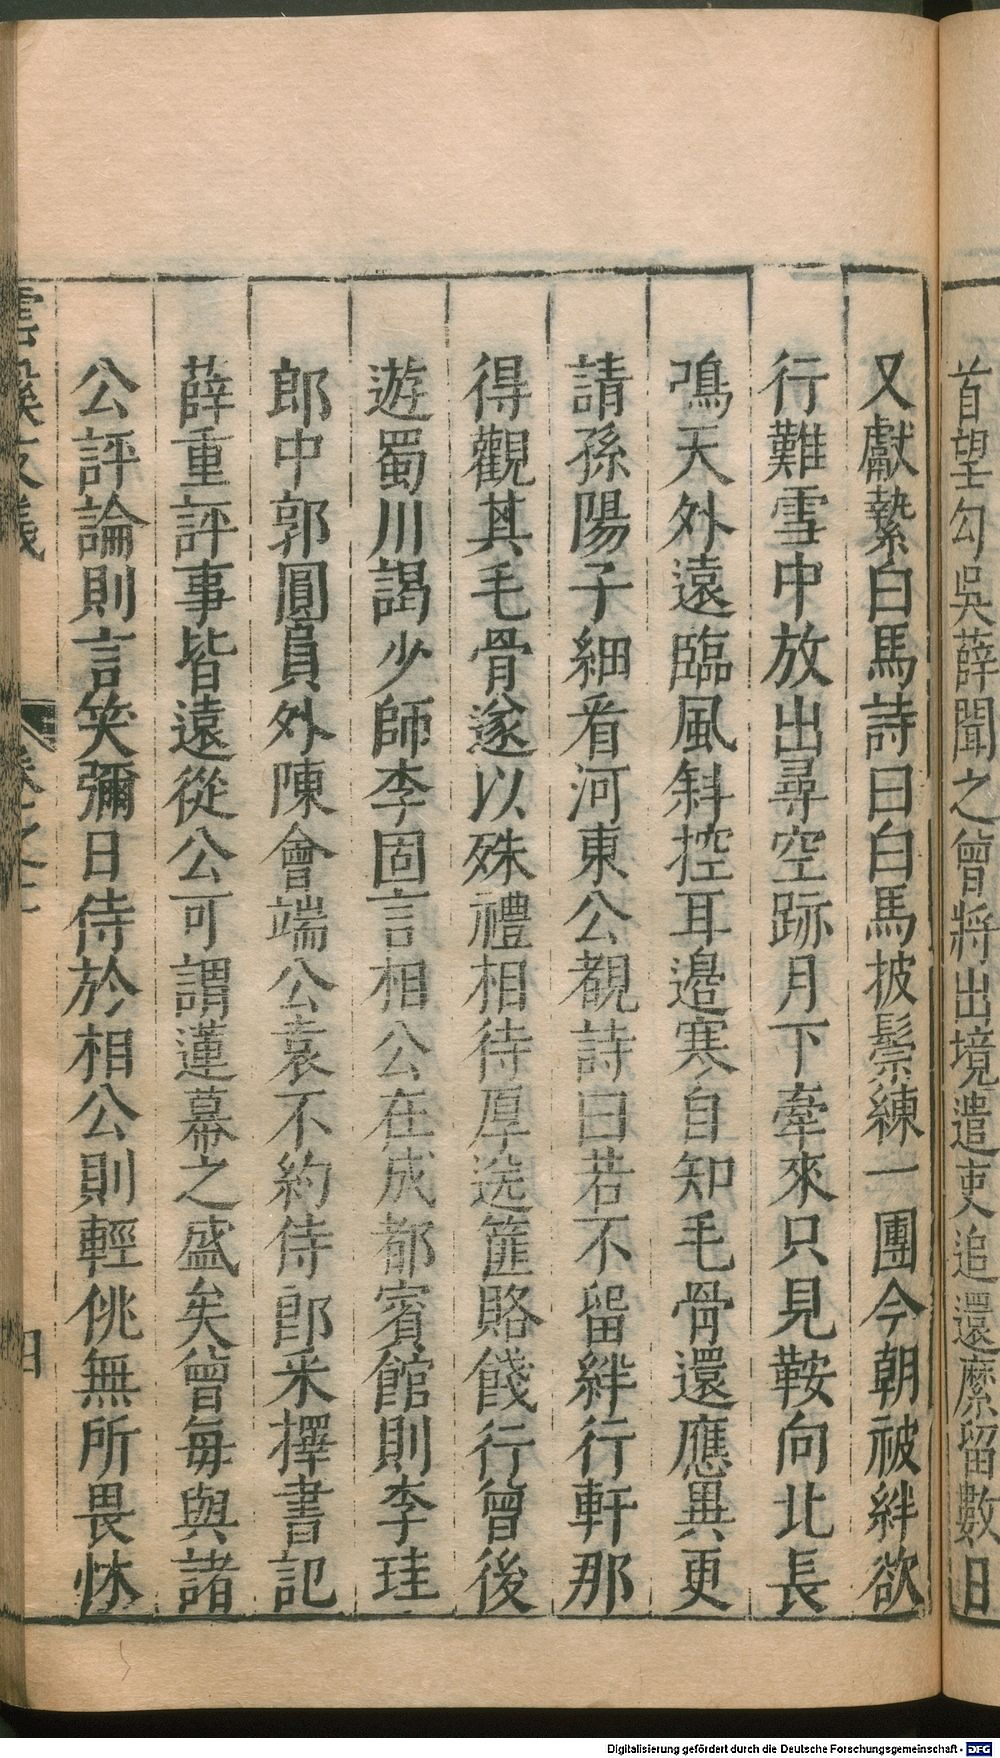 首望勾吳薛聞之曾將出境遣吏追還縻留數日
又獻縶白馬詩曰白馬披鬃練一團今朝被絆欲
行難雪中放出尋空跡月下牽來只見鞍向北長
鳴天外遠臨風斜控耳邊寒自知毛骨還應異更
請孫陽子細看河東公覩詩曰若不留絆行軒那
得觀其毛骨遂以殊禮相待厚送篚賂餞行曾後
遊蜀川謁少師李固言相公在成都賓館則李珪
郎中郭圓員外陳會端公袁不約侍郎來擇書記
薛重評事皆遠從公可謂蓮幕之盛矣曾每與諸
公評論則言笑彌日侍於相公則輕佻無所畏怵
雲溪友議
卷之
四
Digitalisierung gefördert durch die Deutsche Forschungsgemeinschaft - DFG